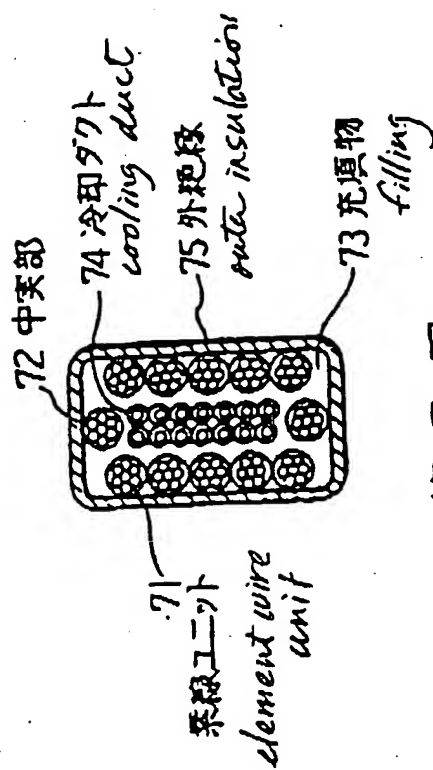 72 中実部
74 冷却ダクト
cooling duct
75 外絶縁
outer insulation
73 充填物
filling
71
素線ユニット
element wire
unit